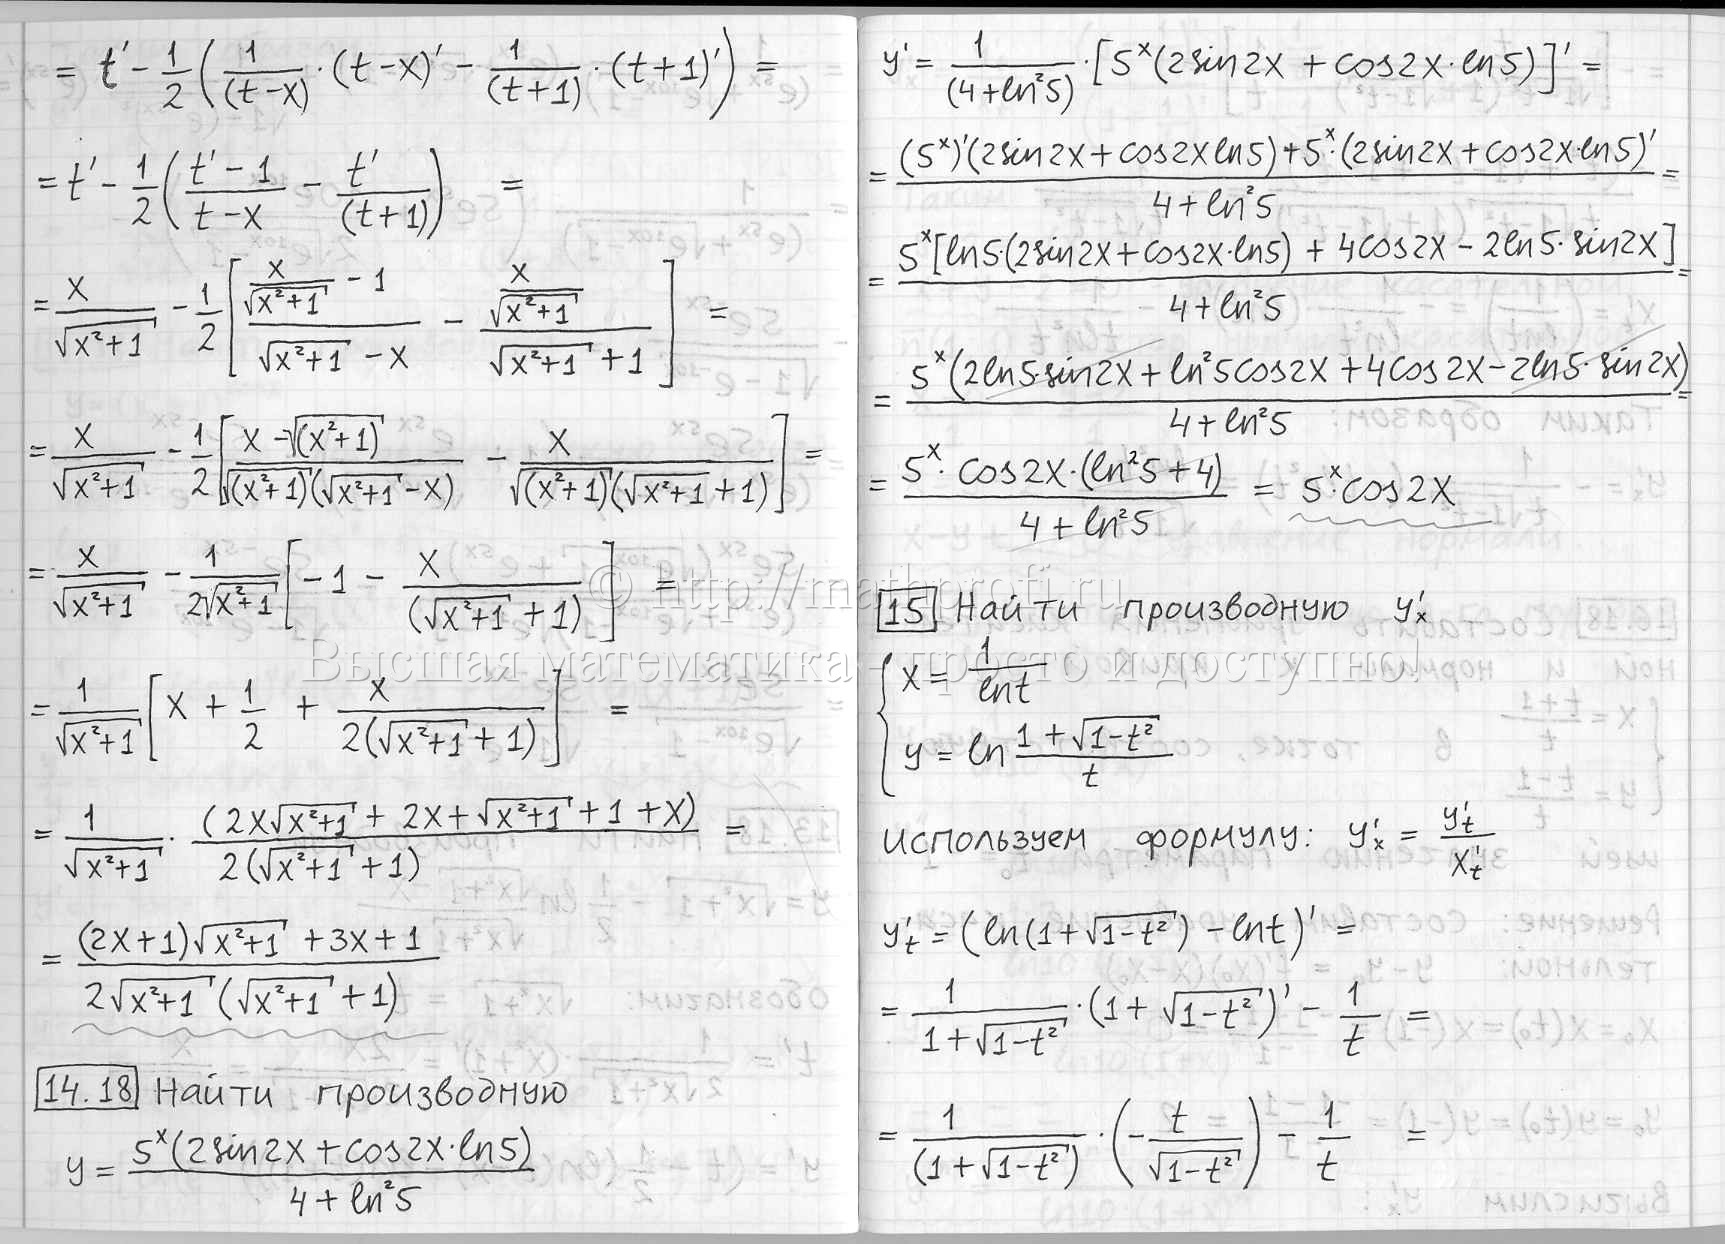 = t' - 1/2 (1/(t-x) · (t-x)' - 1/(t+1) · (t+1)') =
= t' - 1/2 ((t'-1)/(t-x) - t'/(t+1)) =
= x/√(x²+1) - 1/2 [(x/√(x²+1) - 1)/(√(x²+1) - x) - (x/√(x²+1))/(√(x²+1) + 1)] =
= x/√(x²+1) - 1/2 [(x - √(x²+1))/(√(x²+1)(√(x²+1) - x)) - x/(√(x²+1)(√(x²+1) + 1))] =
= x/√(x²+1) - 1/(2√(x²+1)) [-1 - x/(√(x²+1) + 1)] =
= 1/√(x²+1) [x + 1/2 + x/(2(√(x²+1) + 1))] =
= 1/√(x²+1) · (2x√(x²+1) + 2x + √(x²+1) + 1 + x)/(2(√(x²+1) + 1)) =
= ((2x+1)√(x²+1) + 3x + 1)/(2√(x²+1)(√(x²+1) + 1))
14.18 Найти производную
y = 5^x(2sin2x + cos2x·ln5)/(4 + ln²5)
y' = 1/(4+ln²5) · [5^x(2sin2x + cos2x·ln5)]' =
= ((5^x)'(2sin2x + cos2xln5) + 5^x·(2sin2x + cos2x·ln5)')/(4 + ln²5) =
= 5^x[ln5·(2sin2x + cos2x·ln5) + 4cos2x - 2ln5·sin2x]/(4 + ln²5) =
= 5^x(2ln5·sin2x + ln²5cos2x + 4cos2x - 2ln5·sin2x)/(4 + ln²5) =
= 5^x·cos2x·(ln²5 + 4)/(4 + ln²5) = 5^x·cos2x
15 Найти производную y'ₓ
{ x = 1/lnt
y = ln (1 + √(1-t²))/t
Используем формулу: y'ₓ = y'ₜ/x'ₜ
y'ₜ = (ln(1+√(1-t²)) - lnt)' =
= 1/(1+√(1-t²)) · (1 + √(1-t²))' - 1/t =
= 1/(1+√(1-t²)) · (-t/√(1-t²)) - 1/t =
© http://mathprofi.ru
Высшая математика - просто и доступно!